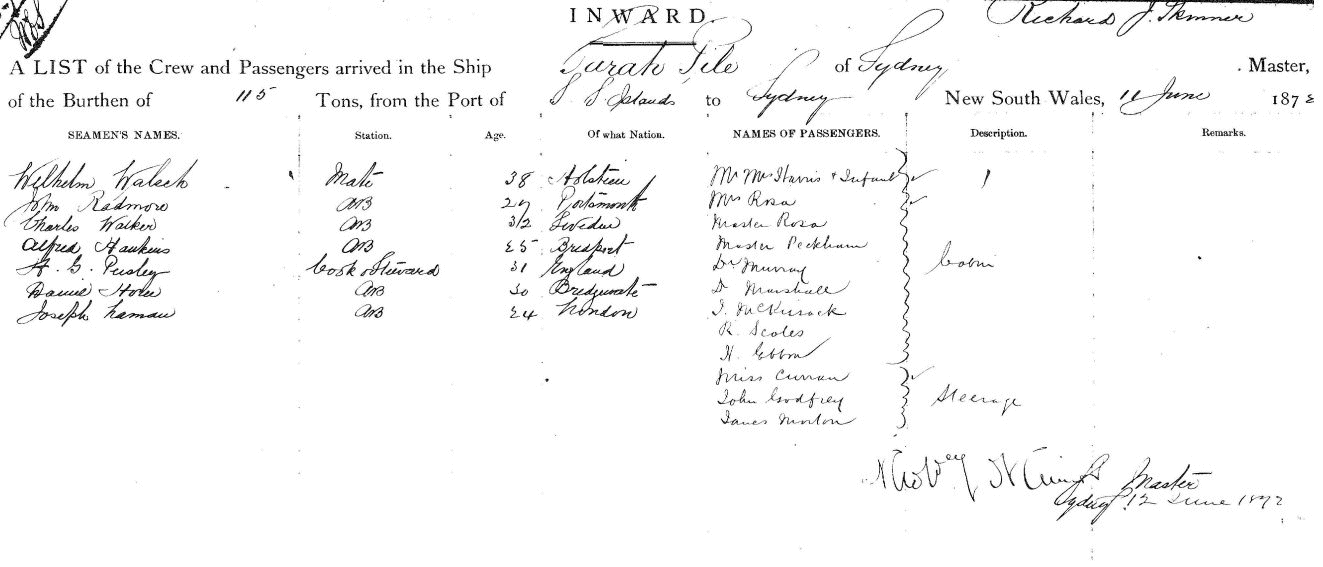 INWARD
Richard J. Skinner
A LIST of the Crew and Passengers arrived in the Ship Sarah Pile of Sydney . Master,
of the Burthen of 115 Tons, from the Port of S S Islands to Sydney New South Wales, 11 June 1872
SEAMEN'S NAMES. Station. Age. Of what Nation. NAMES OF PASSENGERS. Description. Remarks.
Wilhelm Waleck Mate 38 Holstein Mr Mrs Harris + Infant
Wm Radmore AB 27 Portsmouth Mrs Rosa
Charles Walker AB 32 Sweden Master Rosa
Alfred Hawkins AB 25 Bridport Master Peckham
H. G. Pusley Cook & Steward 31 England Dr Murray Cabin
Daniel AB 30 Bridgwater D Marshall
Joseph AB 24 London J. McKussack
R. Scoles
H.
Miss Curran
John Godfrey Steerage
James Morton
Master
Sydney 12 June 1872